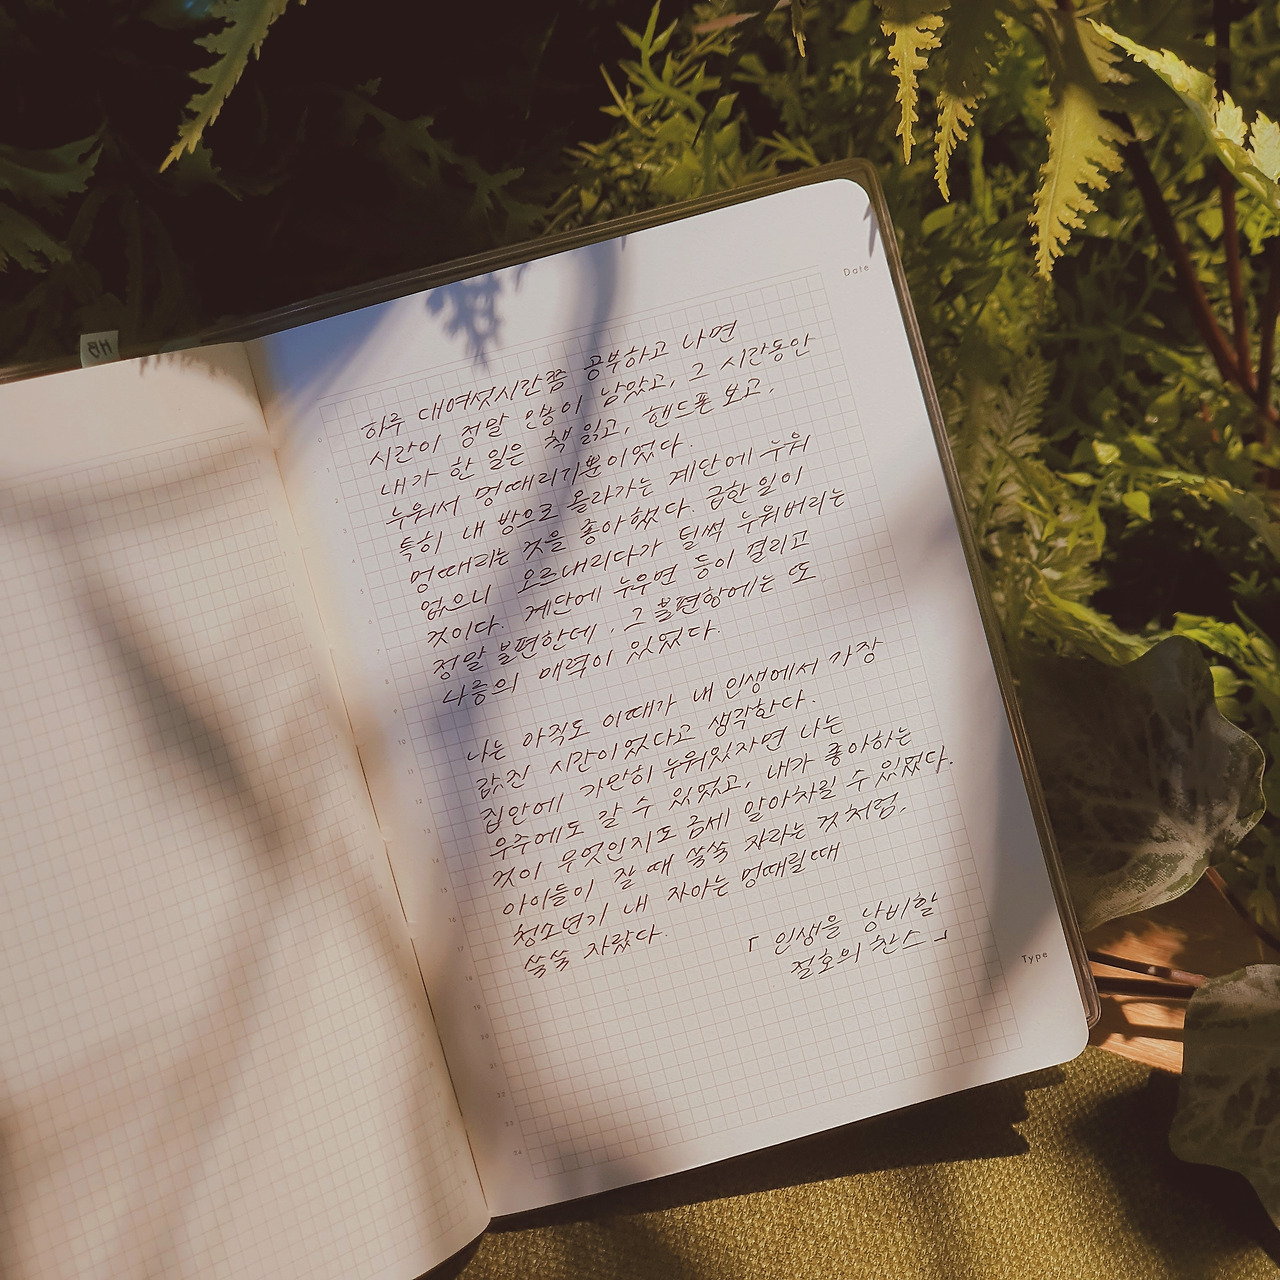 HB
Date
하루 대여섯시간쯤 공부하고 나면
시간이 정말 많이 남았고, 그 시간동안
내가 한 일은 책 읽고, 핸드폰 보고,
누워서 멍때리기뿐이었다.
특히 내 방으로 올라가는 계단에 누워
멍때리는 것을 좋아했다. 급한 일이
없으니 오르내리다가 털썩 누워버리는
것이다. 계단에 누우면 등이 결리고
정말 불편한데, 그 불편함에는 또
나름의 매력이 있었다.
나는 아직도 이때가 내 인생에서 가장
값진 시간이었다고 생각한다.
집안에 가만히 누워있자면 나는
우주에도 갈 수 있었고, 내가 좋아하는
것이 무엇인지도 금세 알아차릴 수 있었다.
아이들이 잘 때 쑥쑥 자라는 것처럼,
청소년기 내 자아는 멍때릴때
쑥쑥 자랐다.
「인생을 낭비할
절호의 찬스」
Type